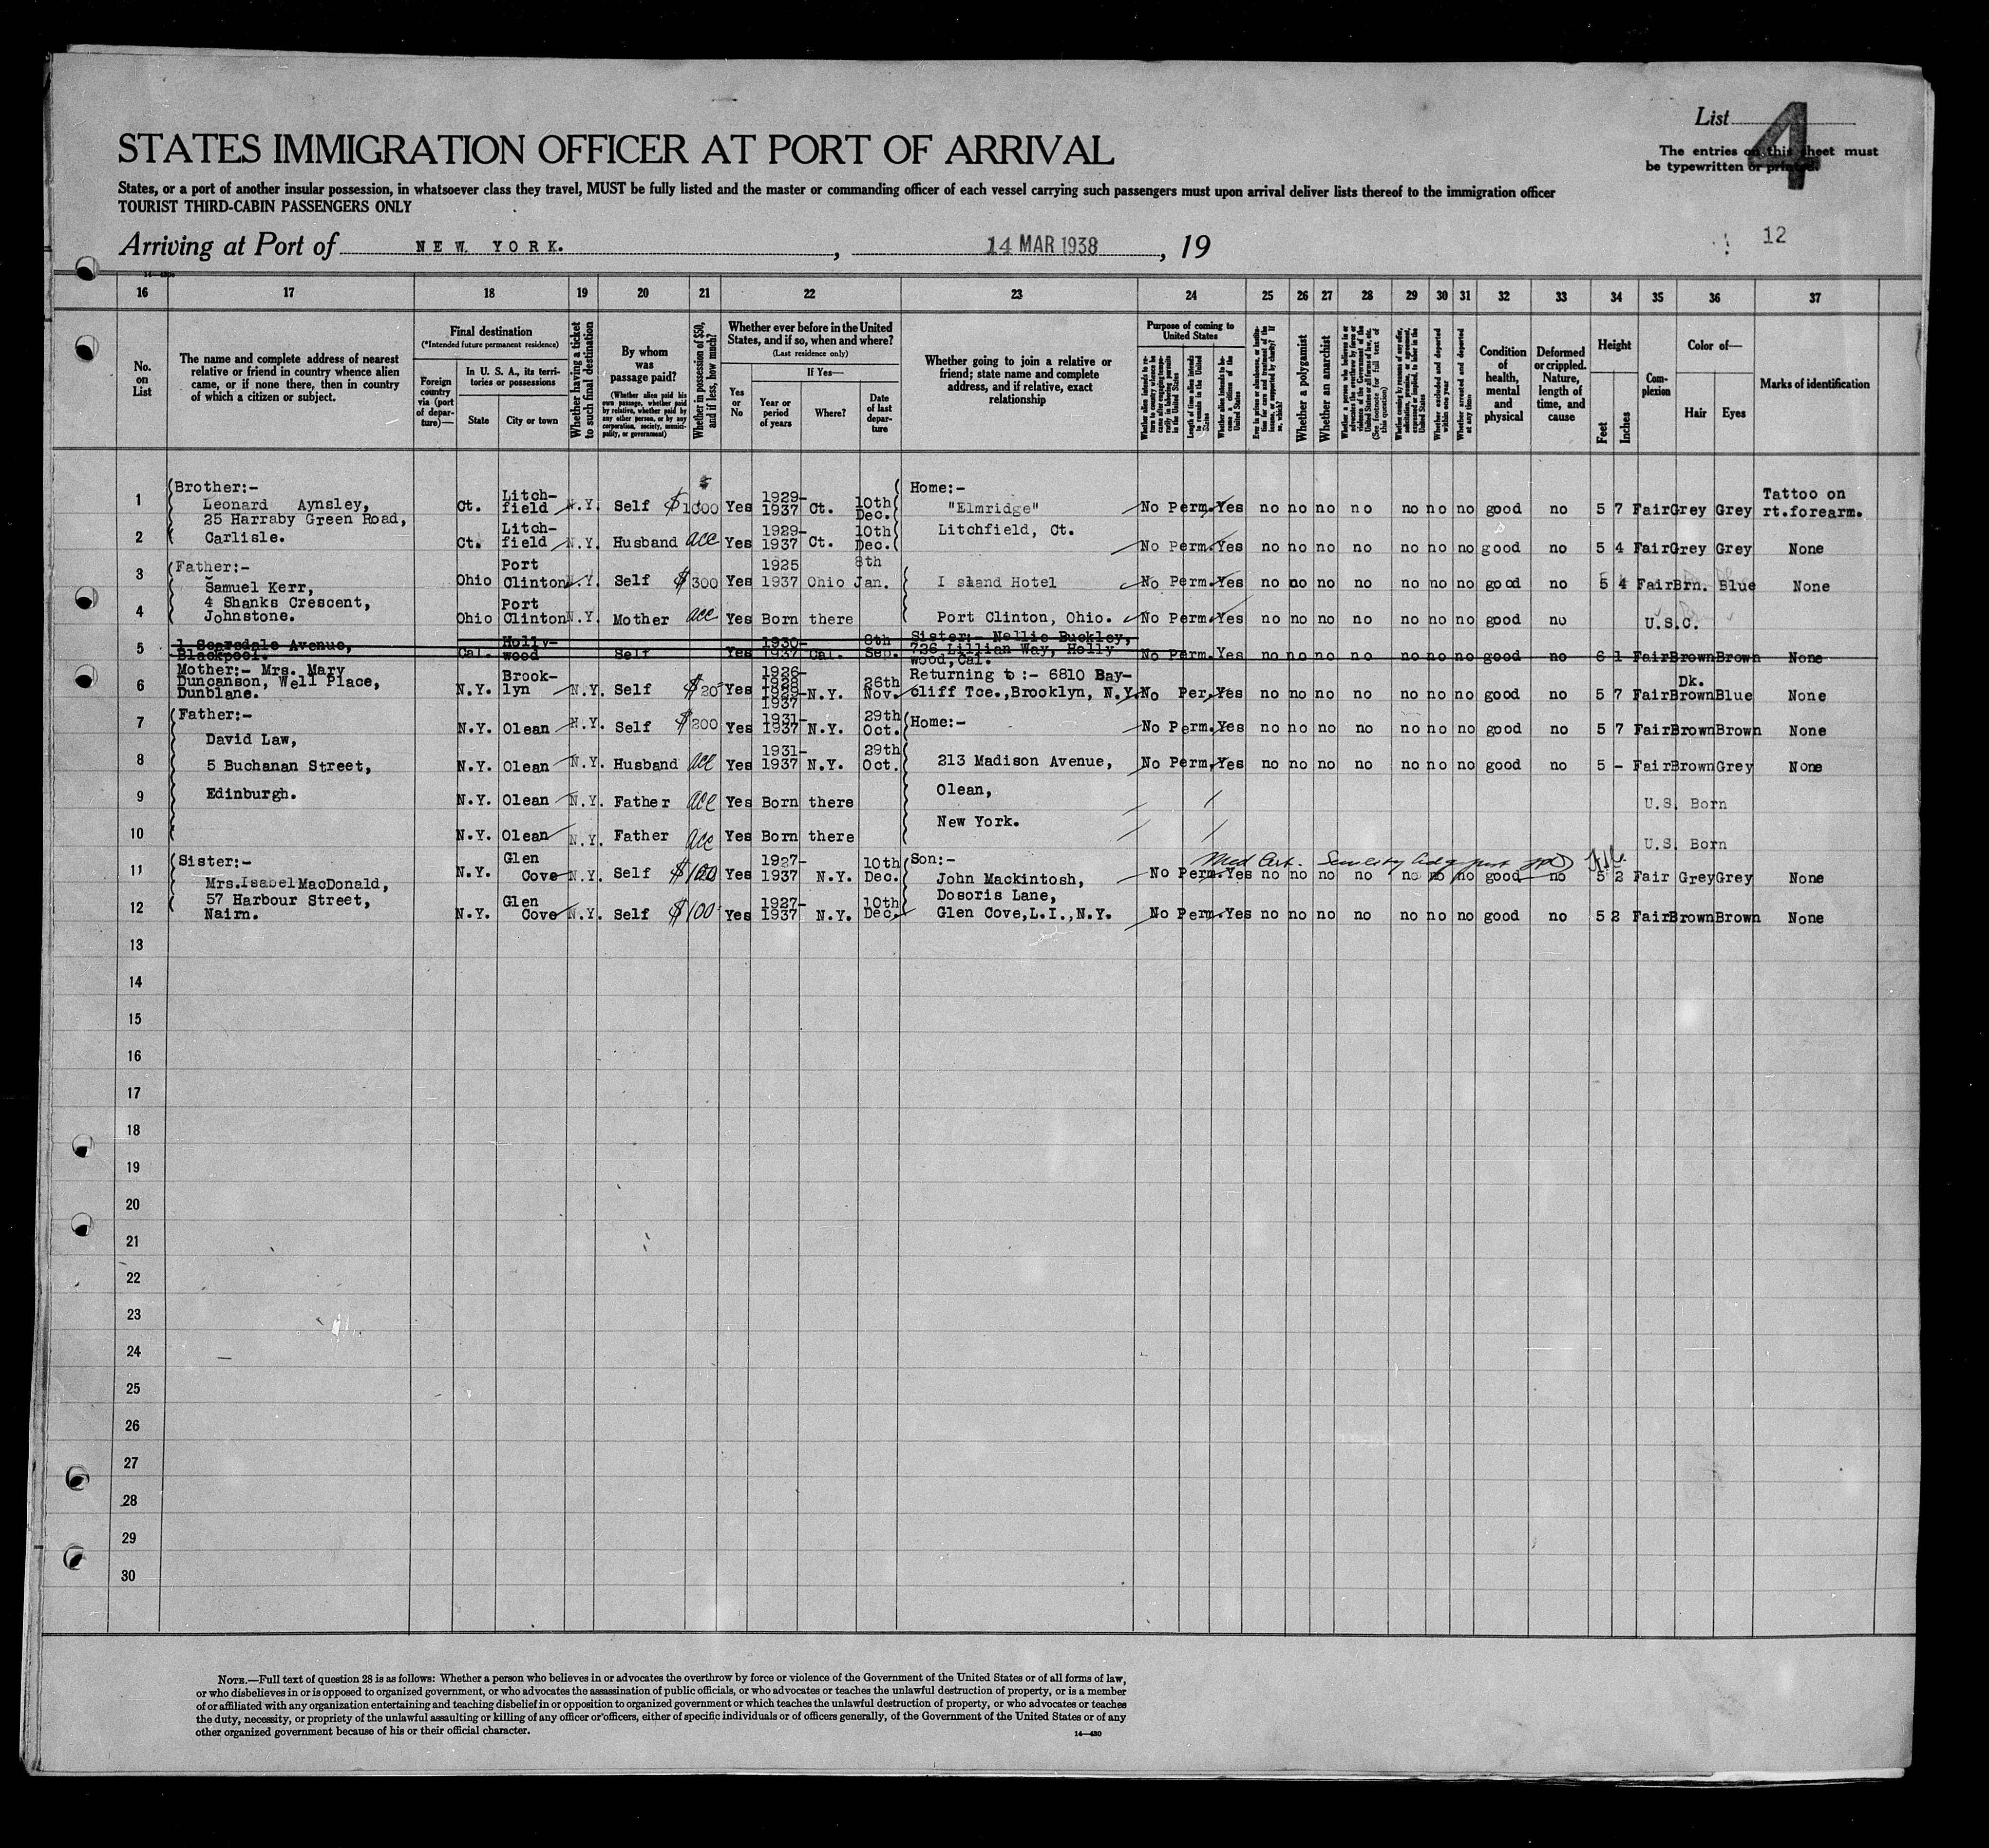 List 4
The entries on this sheet must
be typewritten or printed.
STATES IMMIGRATION OFFICER AT PORT OF ARRIVAL
States, or a port of another insular possession, in whatsoever class they travel, MUST be fully listed and the master or commanding officer of each vessel carrying such passengers must upon arrival deliver lists thereof to the immigration officer
TOURIST THIRD-CABIN PASSENGERS ONLY
Arriving at Port of NEW YORK. , 14 MAR 1938 , 19
12
16 17 18 19 20 21 22 23 24 25 26 27 28 29 30 31 32 33 34 35 36 37
No. on List
The name and complete address of nearest
relative or friend in country whence alien
came, or if none there, then in country
of which a citizen or subject.
Final destination
(*Intended future permanent residence)
Foreign country via (port of departure)—
In U. S. A., its territories or possessions
State
City or town
Whether having a ticket to such final destination
By whom was passage paid?
(Whether alien paid his own passage, whether paid by relative, whether paid by any other person, or by any corporation, society, municipality, or government)
Whether in possession of $50, and if less, how much?
Whether ever before in the United States, and if so, when and where?
(Last residence only)
Yes or No
If Yes—
Year or period of years
Where?
Date of last departure
Whether going to join a relative or
friend; state name and complete
address, and if relative, exact
relationship
Purpose of coming to United States
Length of time alien intends to remain in the United States
Whether alien intends to become a citizen of the United States
Whether a polygamist
Whether an anarchist
Whether excluded and deported within one year
Whether arrested and deported at any time
Condition of health, mental and physical
Deformed or crippled. Nature, length of time, and cause
Height
Feet
Inches
Complexion
Color of—
Hair
Eyes
Marks of identification
1 Brother:- Leonard Aynsley, Ct. Litchfield N.Y. Self $1000 Yes 1929-1937 Ct. 10th Dec. Home:- "Elmridge" No Perm. Yes no no no no no no no good no 5 7 Fair Grey Grey Tattoo on rt.forearm.
25 Harraby Green Road,
2 Carlisle. Ct. Litchfield N.Y. Husband acc Yes 1929-1937 Ct. 10th Dec. Litchfield, Ct. No Perm. Yes no no no no no no no good no 5 4 Fair Grey Grey None
3 Father:- Samuel Kerr, Ohio Port Clinton N.Y. Self $300 Yes 1925 1937 Ohio 8th Jan. Island Hotel No Perm. Yes no no no no no no no good no 5 4 Fair Brn. Blue None
4 Shanks Crescent,
4 Johnstone. Ohio Port Clinton N.Y. Mother acc Yes Born there Port Clinton, Ohio. No Perm. Yes no no no no no no no good no U.S.C.
5 1 Scarsdale Avenue, Blackpool. Cal. Hollywood Self Yes 1930-1937 Cal. 8th Sep. Sister:- Nellie Buckley, 726 Lillian Way, Hollywood, Cal. No Perm. Yes no no no no no no no good no 6 1 Fair Brown Brown None
6 Mother:- Mrs. Mary Duncanson, Well Place, Dunblane. N.Y. Brooklyn N.Y. Self $20 Yes 1926-1928 1929-1937 N.Y. 26th Nov. Returning to:- 6810 Bay-cliff Tce.,Brooklyn, N.Y. No Per. Yes no no no no no no no good no 5 7 Fair Dk. Brown Blue None
7 Father:- N.Y. Olean N.Y. Self $200 Yes 1931-1937 N.Y. 29th Oct. Home:- No Perm. Yes no no no no no no no good no 5 7 Fair Brown Brown None
David Law,
8 5 Buchanan Street, N.Y. Olean N.Y. Husband acc Yes 1931-1937 N.Y. 29th Oct. 213 Madison Avenue, No Perm. Yes no no no no no no no good no 5 - Fair Brown Grey None
9 Edinburgh. N.Y. Olean N.Y. Father acc Yes Born there Olean, U.S. Born
10 N.Y. Olean N.Y. Father acc Yes Born there New York. U.S. Born
Med Cert. Senility
11 Sister:- Mrs.Isabel MacDonald, N.Y. Glen Cove N.Y. Self $100 Yes 1927-1937 N.Y. 10th Dec. Son:- John Mackintosh, No Perm. Yes no no no no no no no good no 5 2 Fair Grey Grey None
57 Harbour Street, Dosoris Lane,
12 Nairn. N.Y. Glen Cove N.Y. Self $100 Yes 1927-1937 N.Y. 10th Dec. Glen Cove,L.I.,N.Y. No Perm. Yes no no no no no no no good no 5 2 Fair Brown Brown None
13
14
15
16
17
18
19
20
21
22
23
24
25
26
27
28
29
30
NOTE.—Full text of question 28 is as follows: Whether a person who believes in or advocates the overthrow by force or violence of the Government of the United States or of all forms of law,
or who disbelieves in or is opposed to organized government, or who advocates the assassination of public officials, or who advocates or teaches the unlawful destruction of property, or is a member
of or affiliated with any organization entertaining and teaching disbelief in or opposition to organized government or which teaches the unlawful destruction of property, or who advocates or teaches
the duty, necessity, or propriety of the unlawful assaulting or killing of any officer or officers, either of specific individuals or of officers generally, of the Government of the United States or of any
other organized government because of his or their official character.
14—430